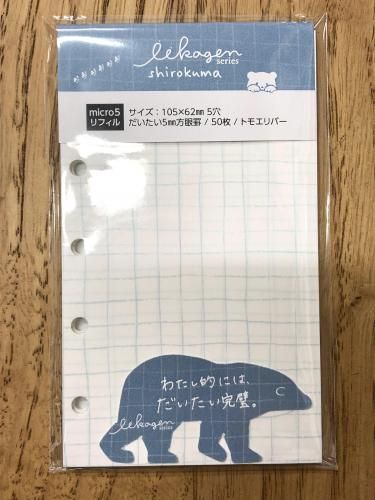 iikagen
series
shirokuma
micro5
リフィル
サイズ：105×62㎜ 5穴
だいたい5㎜方眼罫 / 50枚 / トモエリバー
わたし的には、
だいたい完璧。
iikagen
series